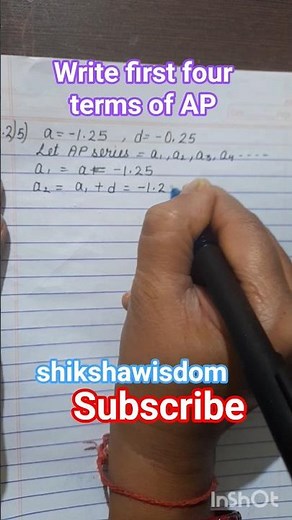 Write first four
terms of AP
.2)5) a = -1.25 , d = -0.25
Let AP series = a₁, a₂, a₃, a₄ ----
a₁ = a = -1.25
a₂ = a₁ + d = -1.2
shikshawisdom
Subscribe
InShOt